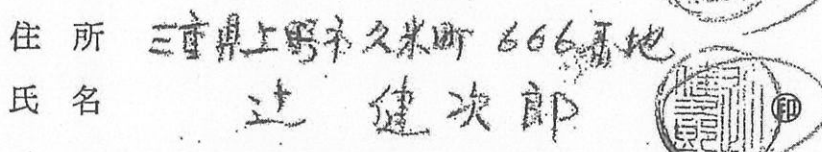 住所 三重県上野市久米町 666番地
氏名 辻 健次郎 ㊞